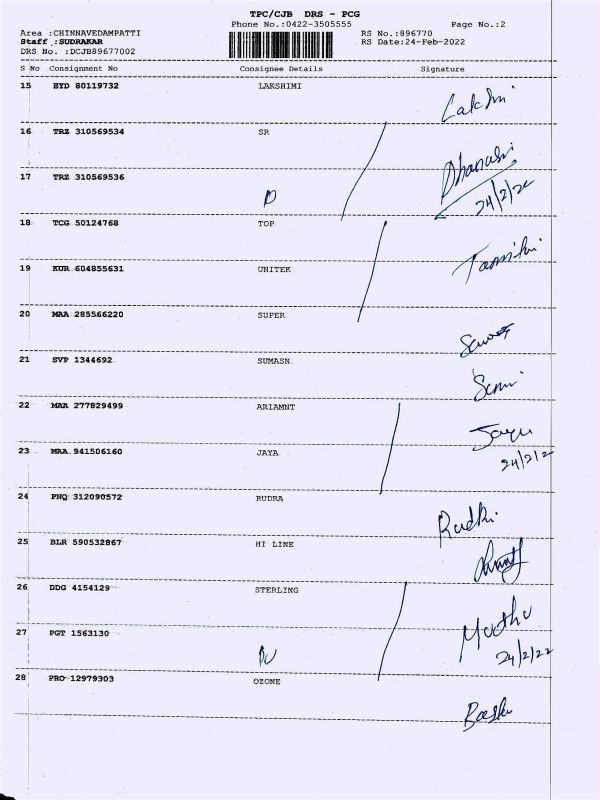 TPC/CJB DRS - PCG
Phone No.:0422-3505555 Page No.:2
Area :CHINNAVEDAMPATTI RS No.:896770
Staff :SUDRAKAR RS Date:24-Feb-2022
DRS No. :DCJB89677002
S No Consignment No Consignee Details Signature
15 HYD 80119732 LAKSHIMI
Lakshi
16 TRZ 310569534 SR
Dhanashi
17 TRZ 310569536
24/2/22
18 TCG 50124768 TOP
19 KUR 604855631 UNITEK
20 MAA 285566220 SUPER
21 SVP 1344692 SUMASN
22 MAA 277829499 ARIAMNT
23 MAA 941506160 JAYA
24/2/2
24 PNQ 312090572 RUDRA
Radhi
25 BLR 590532867 HI LINE
26 DDG 4154129 STERLING
Muthu
27 PGT 1563130
24/2/22
28 PRO 12979303 OZONE